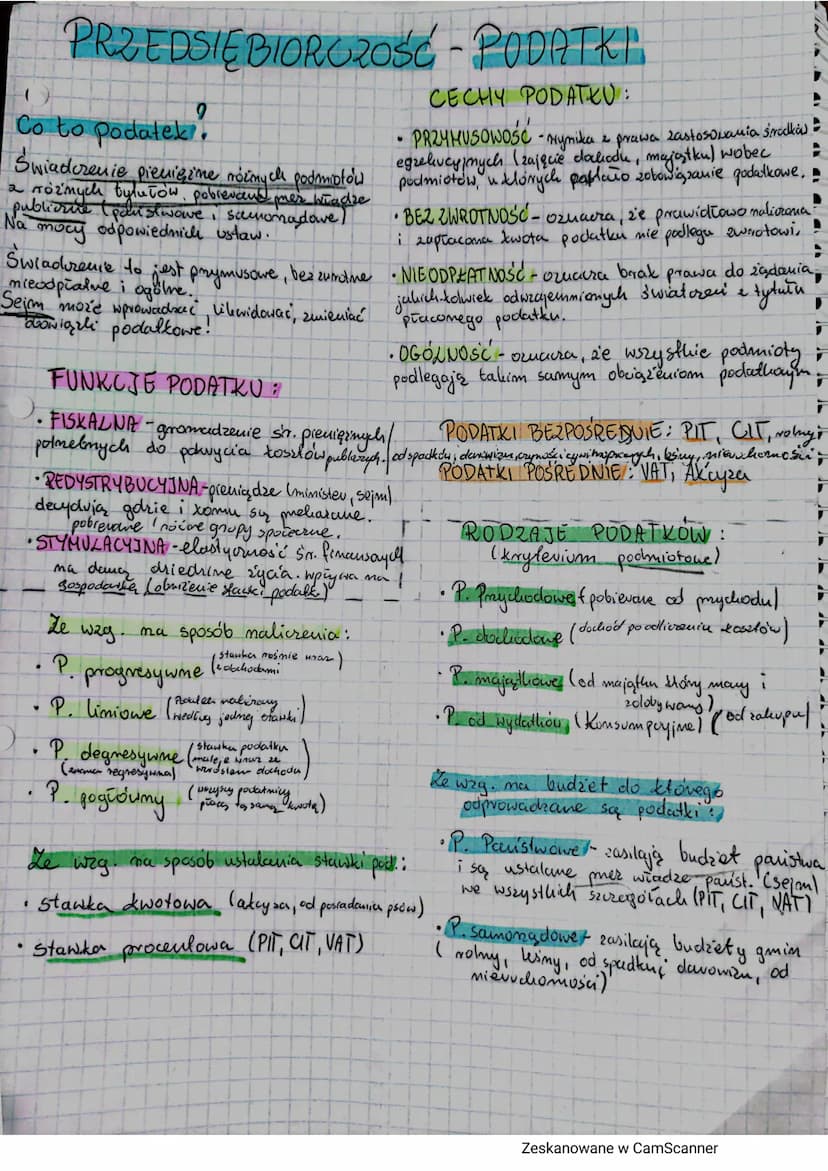 PRZEDSIĘBIORCZOŚĆ - PODATKI
1
Co to podatek?
Świadczenie pieniężne różnych podmiotów
z różnych tytułów, pobierane przez władze
publiczne (państwowe i samorządowe)
Na mocy odpowiednich ustaw.
Świadczenie to jest przymusowe, bezzwrotne
nieodpłatne i ogólne.
Sejm może wprowadzać, likwidować, zmieniać
obowiązki podatkowe!
FUNKCJE PODATKU:
• FISKALNA - gromadzenie śr. pieniężnych
potrzebnych do pokrycia kosztów publicznych.
• REDYSTRYBUCYJNA - pieniądze (ministew, sejm)
decydują gdzie i komu są przekazane.
pobierane / różne grupy społeczne.
• STYMULACYJNA - elastyczność śr. finansowych
na daną dziedzinę życia. wpływa na
gospodarkę (obniżenie stawki podatk.)
Ze wzg. na sposób naliczenia:
• P. progresywne (stawka rośnie wraz
z dochodami)
• P. liniowe (Podatek naliczany
według jednej stawki)
• P. degresywne (stawka podatku
maleje wraz ze
(zwana regresywną) wzrostem dochodu)
• P. pogłówny (wszyscy podatnicy
płacą tą samą kwotę)
Ze wzg. na sposób ustalania stawki pod.:
• stawka kwotowa (akcyza, od posiadania psów)
• stawka procentowa (PIT, CIT, VAT)
CECHY PODATKU:
• PRZYMUSOWOŚĆ - wynika z prawa zastosowania środków
egzekucyjnych (zajęcie dochodu, majątku) wobec
podmiotów, u których zobowiązanie podatkowe.
• BEZZWROTNOŚĆ - oznacza, że prawidłowo naliczona
i zapłacona kwota podatku nie podlega zwrotowi.
• NIEODPŁATNOŚĆ - oznacza brak prawa do żądania
jakichkolwiek odwzajemnionych świadczeń z tytułu
płaconego podatku.
• OGÓLNOŚĆ - oznacza, że wszystkie podmioty
podlegają takim samym obciążeniom podatkowym.
PODATKI BEZPOŚREDNIE: PIT, CIT, rolny,
od spadków, darowizn, czynności cywilnoprawnych, leśny, nieruchomości
PODATKI POŚREDNIE: VAT, Akcyza
RODZAJE PODATKÓW:
(kryterium podmiotowe)
• P. Przychodowe (pobierane od przychodu)
• P. dochodowe (dochód po odliczeniu kosztów)
• P. majątkowe (od majątku który mamy i
zdobywamy)
• P. od wydatków (Konsumpcyjne) (od zakupu)
Ze wzg. na budżet do którego
odprowadzane są podatki:
• P. Państwowe - zasilają budżet państwa
i są ustalane przez władze państ. (sejm)
we wszystkich szczegółach (PIT, CIT, VAT)
• P. samorządowe - zasilają budżety gmin
(rolny, leśny, od spadku, darowizn, od
nieruchomości)
Zeskanowane w CamScanner